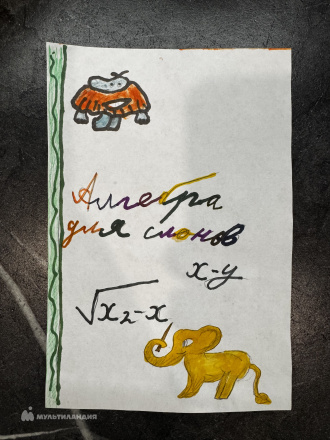 Алгебра
для слонов
x-y
√x₂-x
МУЛЬТИЛАНДИЯ